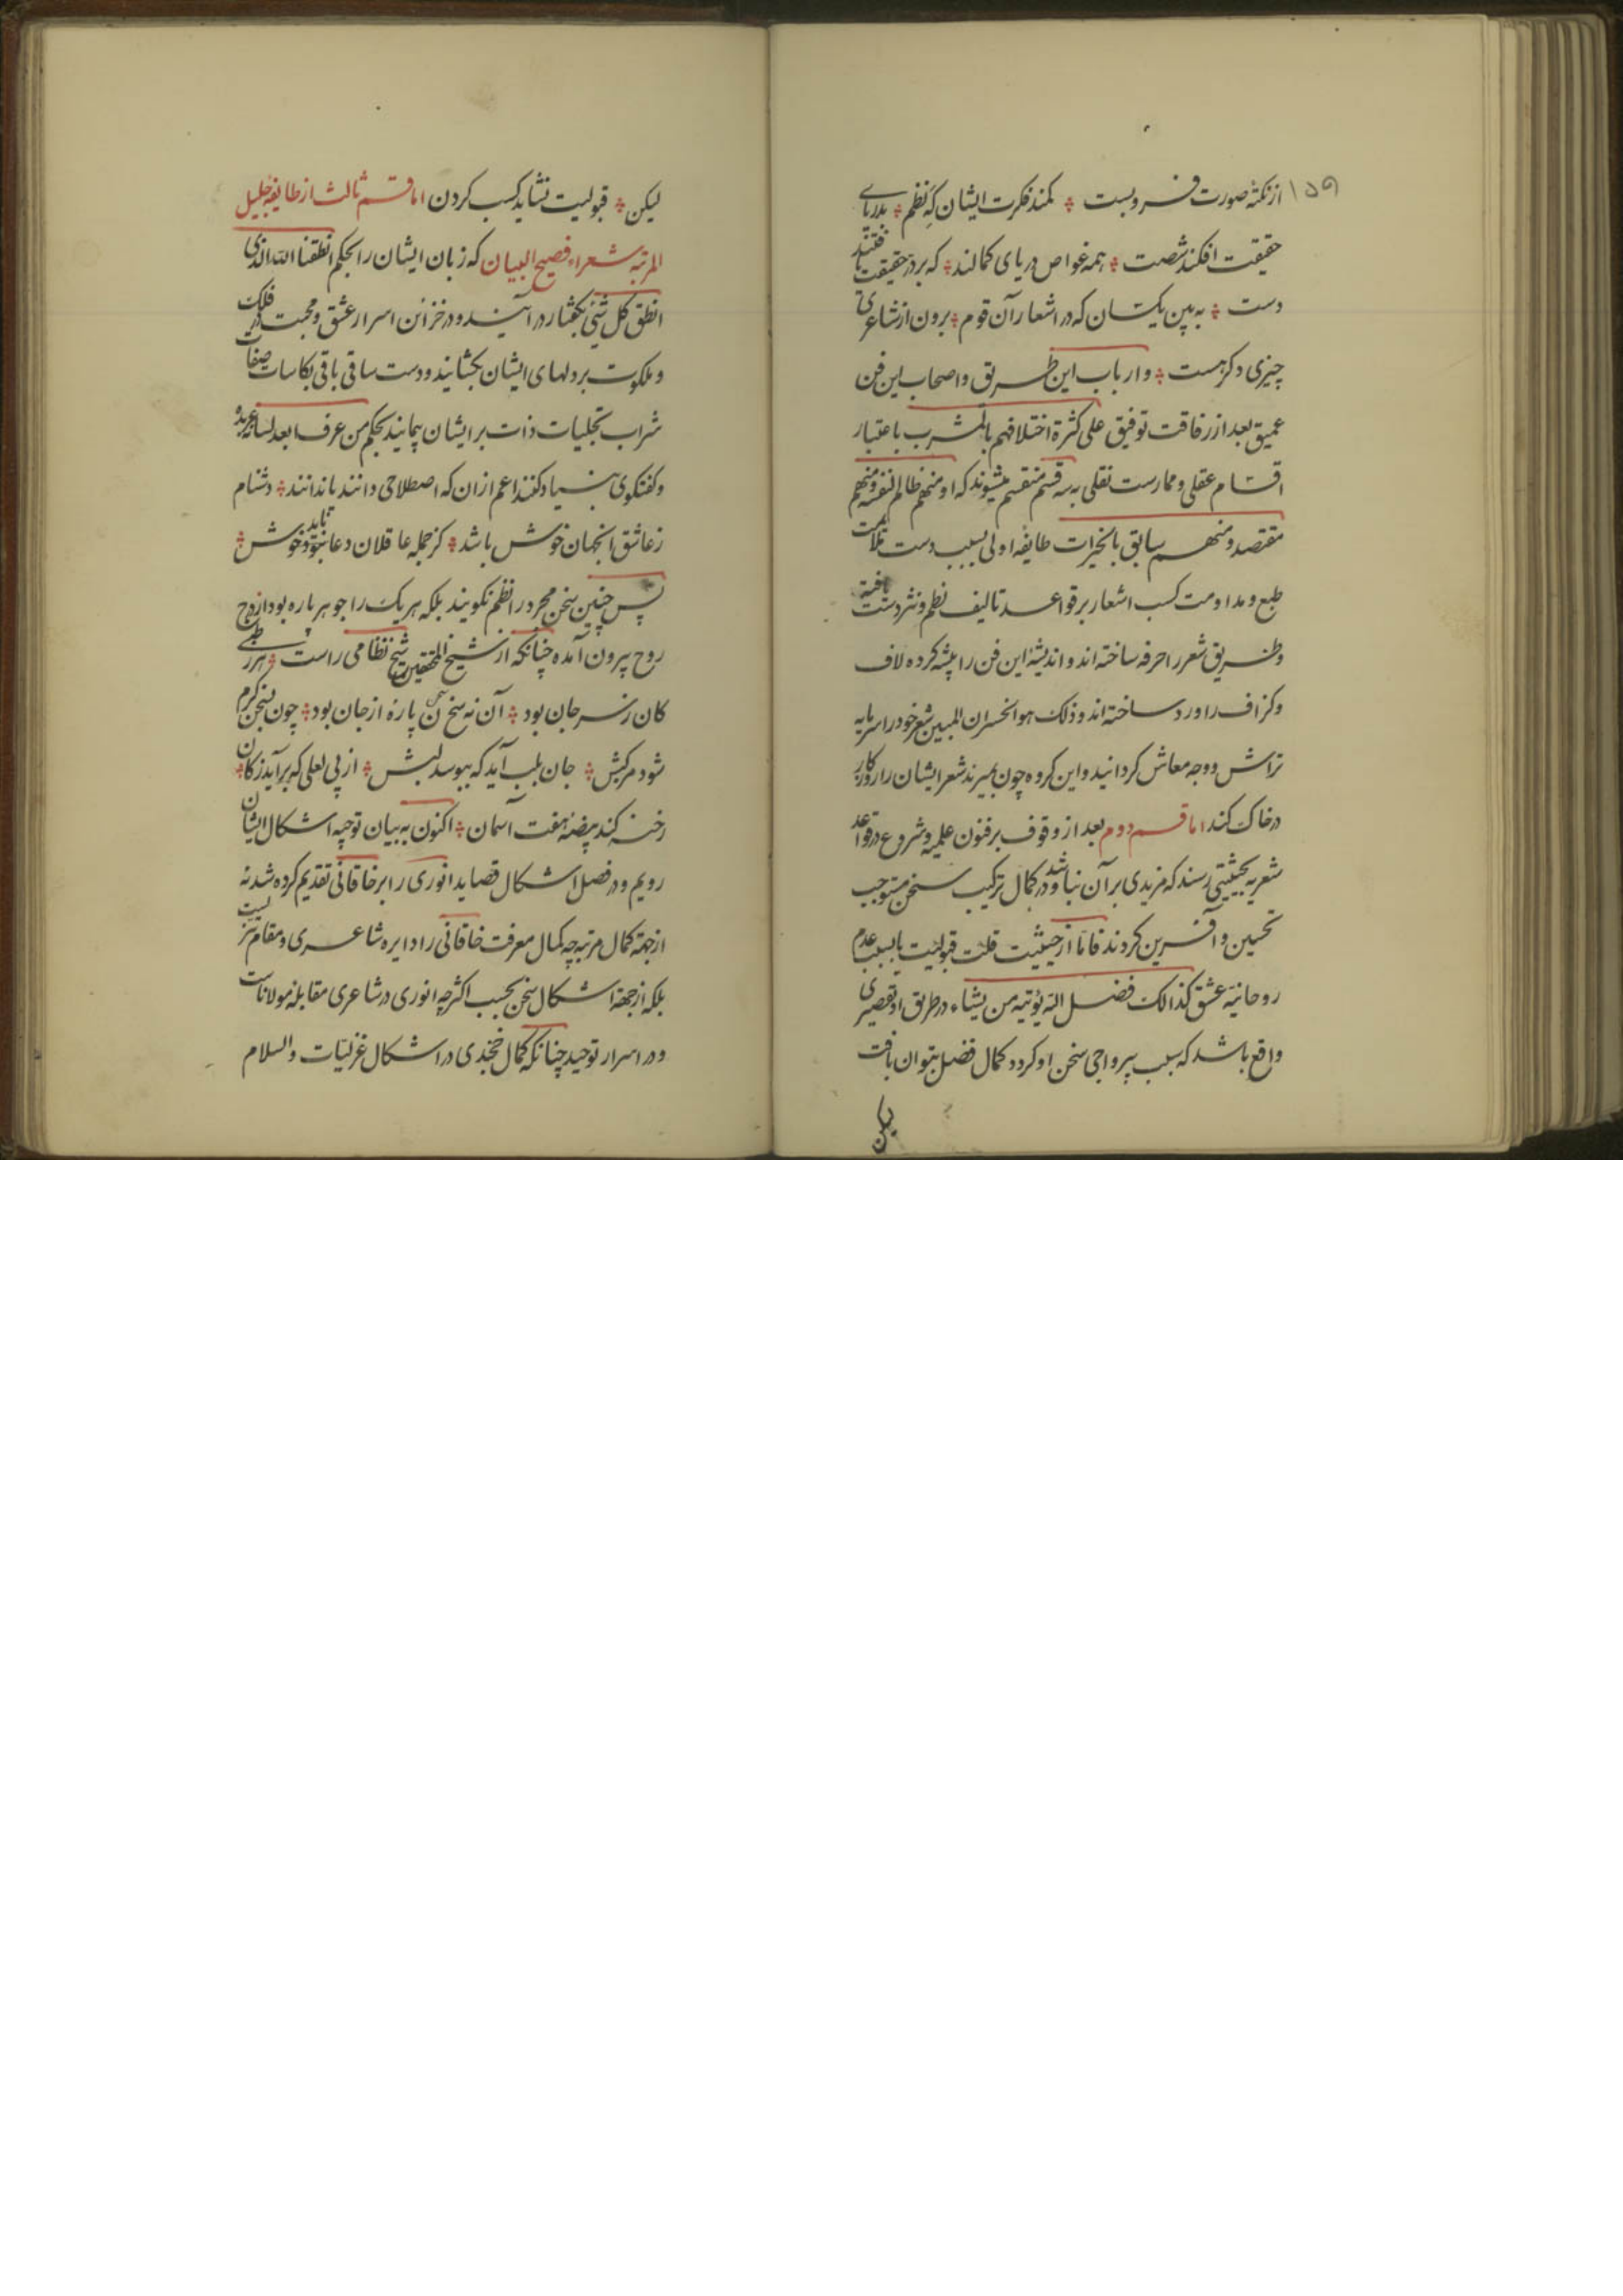 ١٥٩
از نکتهٔ صورت فرو بست ؞ کمند فکرت ایشان که نظم ؞ بدریای
حقیقت افکند شصت ؞ همه غواص دریای کمالند ؞ که بر در حقیقت یافتند
دست ؞ به بین یکسان که در اشعار آن قوم ؞ برون از شاعری
چیزی دکر هست ؞ و ارباب این طریق و اصحاب این فن
عمیق بعد از رفاقت توفیق علی کثرة اختلافهم بالمشرب باعتبار
اقسام عقلی و ممارست نقلی به سه قسم منقسم میشوند که او منهم ظالم لنفسه و منهم
مقتصد و منهم سابق بالخیرات طایفهٔ اولی بسبب دست
طبع و مداومت کسب اشعار بر قواعد تالیف نظم و نثر دست یافته
و طریق شعر را حرفه ساخته اند و اندیشهٔ این فن را پیشه کرده لاف
و کزاف را ورد ساخته اند و ذلک هو الخسران المبین شعر خود را سرمایه
تراش و وجه معاش کردانید و این کروه چون بمیرند شعر ایشان را روزکار
در خاک کند اما قسم دوم بعد از وقوف بر فنون علمیه و شروع در قواعد
شعریه بحیثیتی رسند که مزیدی بر آن نباشد و در کمال ترکیب سخن مستوجب
تحسین و آفرین کردند فاما از حیثیت قلت قبولیت یا بسبب عدم
روحانیة عشق کذالک فضل الله یؤتیه من یشاء در طریق او تقصیری
واقع باشد که بسبب بیرواجی سخن او کردد کمال فضل بتوان یافت
لیکن
لیکن ؞ قبولیت نشاید کسب کردن اما قسم ثالث از طایفه جلیل
المرتبه شعراء فصیح البیان که زبان ایشان را بحکم انطقنا الله الذی
انطق کل شئ بکفتار در آیند و در خزائن اسرار عشق و محبت در فلک
و ملکوت بر دلهای ایشان بکشایند و دست ساقی باقی بکاسات صفات
شراب تجلیات ذات بر ایشان پیمایند بحکم من عرف ابعد لسانه عربده
و کفتکوی بنیاد کنند اعم از ان که اصطلاحی دانند یا ندانند ؞ دشنام
ز عاشق انجهان خوش باشد ؞ کز جمله عاقلان دعا نبود خوش ؞
پس چنین سخن مجرد را نظم نکویند بلکه هر یک را جوهر پاره بود از درج
روح بیرون آمده چنانکه از شیخ المحققین شیخ نظامی راست ؞ هر رطبی
کان ز سر جان بود ؞ آن نه سخن پارهٔ از جان بود ؞ چون سخن کرم
شود مرکبش ؞ جان بلب آید که ببوسد لبش ؞ از پی لعلی که برآید ز کان ؞
رخنه کند بیضهٔ هفت آسمان ؞ اکنون به بیان توجیه اشکال ایشان
رویم و در فصل اشکال قصاید انوری را بر خاقانی تقدیم کرده شد نه
از جهة کمال مرتبه چه کمال معرفت خاقانی را دایره شاعری و مقام
بلکه از جهة اشکال سخن بحسب اکثر چه انوری در شاعری مقابله مولاناست
و در اسرار توحید چنانکه کمال خجندی در اشکال غزلیات والسلام